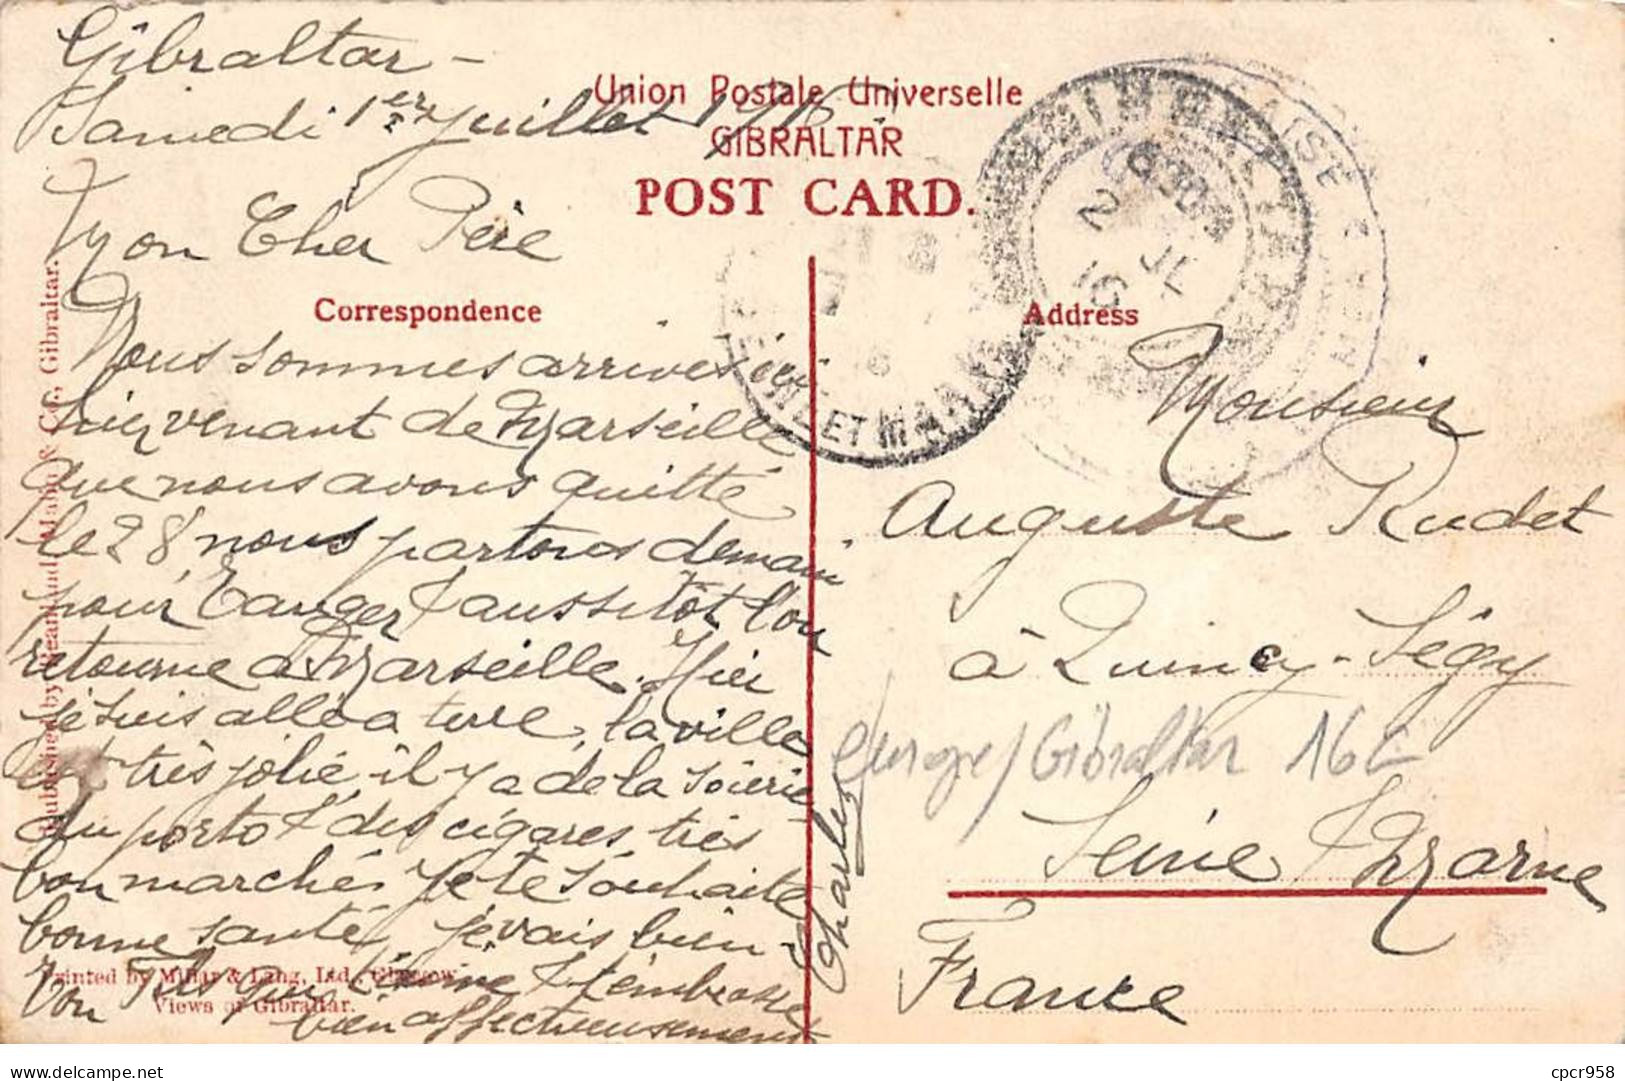 Gibraltar -
Samedi 1er Juillet 1916
Mon Cher Père
Union Postale Universelle
GIBRALTAR
POST CARD.
Correspondence
Nous sommes arrives ici
hier venant de Marseille
que nous avons quitté
le 28, nous partons demain
pour Tanger & aussitôt l'on
retourne a Marseille. Hier
je suis allé a terre, la ville
est très jolie il y a de la soierie
du porto & des cigares très
bon marché. Je te souhaite
bonne santé, je vais bien -
Ton Fils qui t'aime & t'embrasse
bien affectueusement
Charles
Address
Monsieur
Auguste Rudet
à Quincy-Ségy
Seine & Marne
France
Europe/Gibraltar 16E
2 JL 16
SEINE ET MARNE
Published by Beanland Malin & Co., Gibraltar.
Printed by Millar & Lang, Ltd., Glasgow
Views of Gibraltar.
delcampe.net
cpcr958